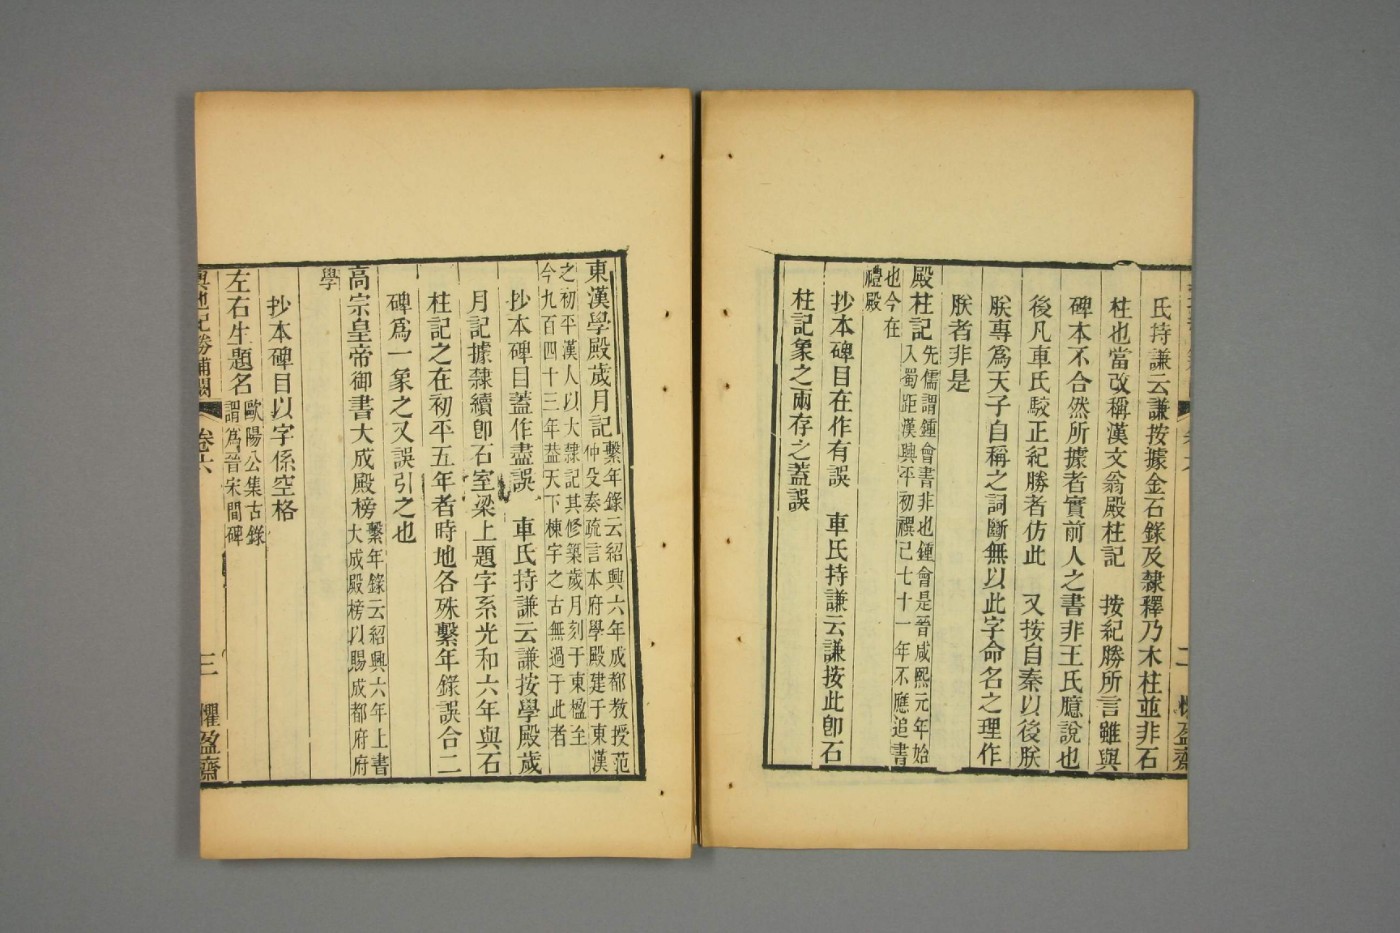 氏持謙云謙按據金石錄及隸釋乃木柱並非石
柱也當改稱漢文翁殿柱記　按紀勝所言雖與
碑本不合然所據者實前人之書非王氏臆說也
後凡車氏駮正紀勝者仿此　又按自秦以後朕
朕專爲天子自稱之詞斷無以此字命名之理作
朕者非是
殿柱記先儒謂鍾會書非也鍾會是晉咸熙元年始
入蜀距漢興平初禩已七十一年不應追書
也今在
禮殿
抄本碑目在作有誤　車氏持謙云謙按此卽石
柱記象之兩存之蓋誤
東漢學殿歲月記繫年錄云紹興六年成都教授范
仲殳奏疏言本府學殿建于東漢
之初平漢人以大隸記其修築歲月刻于東楹至
今九百四十三年葢天下棟宇之古無過于此者
抄本碑目蓋作盡誤　車氏持謙云謙按學殿歲
月記據隸續卽石室梁上題字系光和六年與石
柱記之在初平五年者時地各殊繫年錄誤合二
碑爲一象之又誤引之也
高宗皇帝御書大成殿榜繫年錄云紹興六年上書
大成殿榜以賜成都府府
學
抄本碑目以字係空格
左右生題名歐陽公集古錄
謂爲晉宋間碑
輿地紀勝補闕　卷六　三　懼盈齋